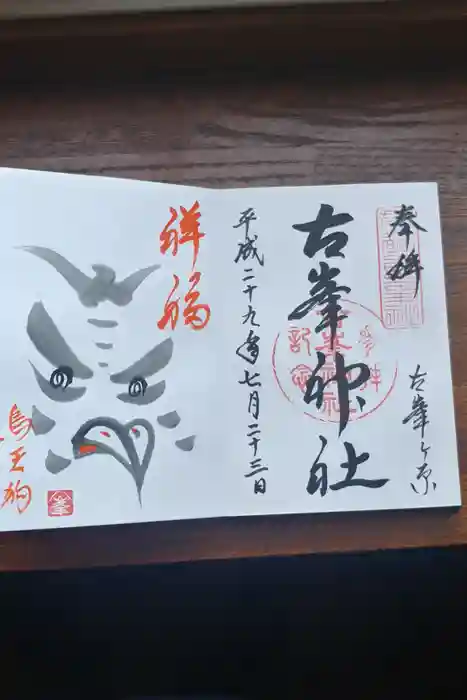 奉拝
古峯ヶ原
古峯神社
平成二十九年七月二十三日
祥福
烏天狗
峯